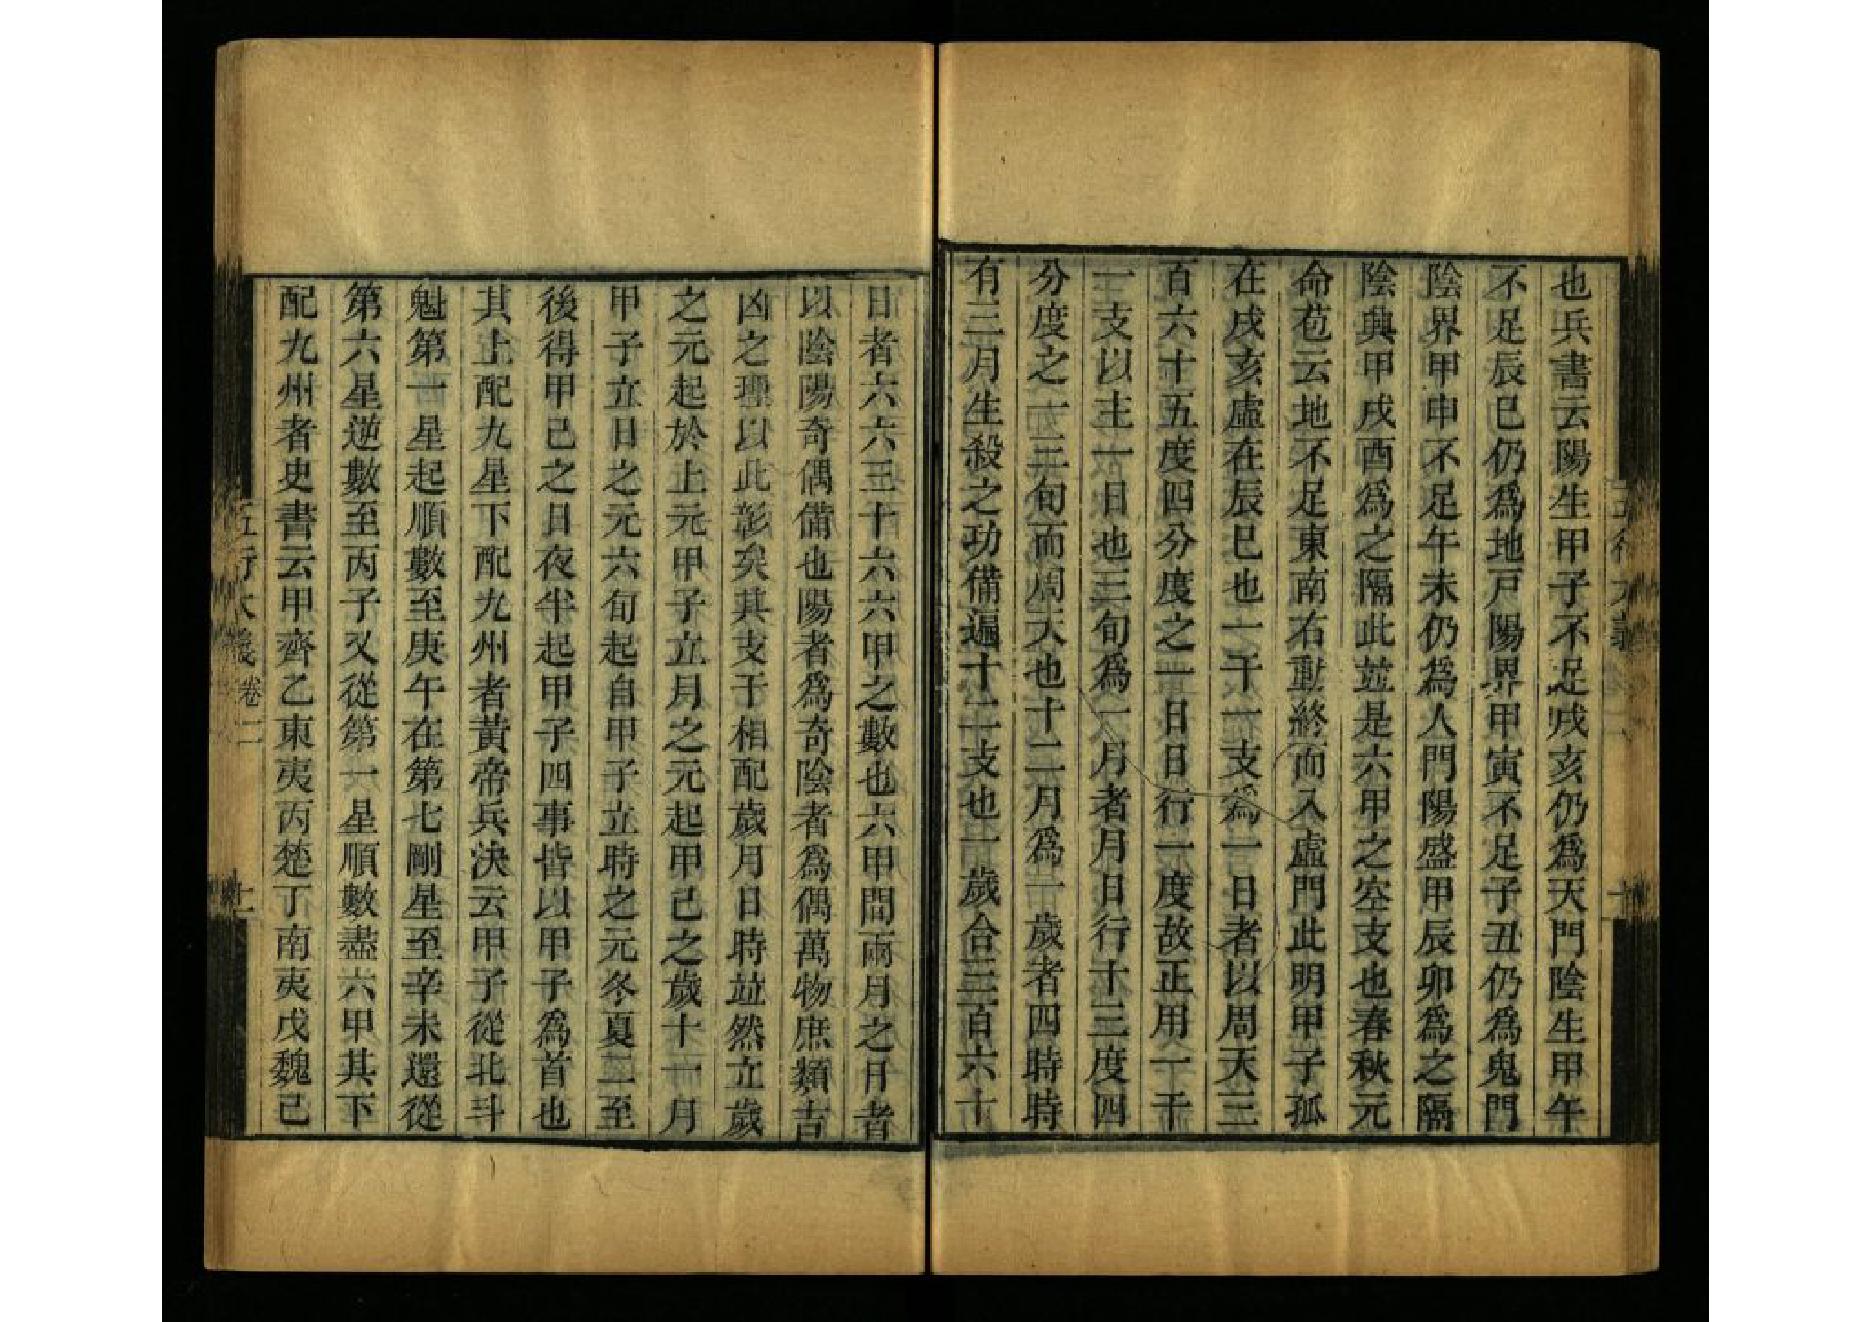 也兵書云陽生甲子不足戌亥仍爲天門陰生甲午
不足辰巳仍爲地戸陽界甲寅不足子丑仍爲鬼門
陰界甲申不足午未仍爲人門陽盛甲辰卯爲之隔
陰興甲戌酉爲之隔此並是六甲之空支也春秋元
命苞云地不足東南右動終而入虛門此明甲子孤
在戌亥虛在辰巳也一干一支爲一日者以周天三
百六十五度四分度之一日日行一度故正用一干
一支以主一日也三旬爲一月者月日行十三度四
分度之一三旬而周天也十二月爲一歲者四時時
有三月生殺之功備遍十二支也一歲合三百六十
日者六六三十六六甲之數也六甲間兩月之日者
以陰陽奇偶備也陽者爲奇陰者爲偶萬物庶類吉
凶之理以此彰矣其支干相配歲月日時並然立歲
之元起於上元甲子立月之元起甲己之歲十一月
甲子立日之元六旬起自甲子立時之元冬夏二至
後得甲己之日夜半起甲子四事皆以甲子爲首也
其上配九星下配九州者黃帝兵決云甲子從北斗
魁第一星起順數至庚午在第七剛星至辛未還從
第六星逆數至丙子又從第一星順數盡六甲其下
配九州者史書云甲齊乙東夷丙楚丁南夷戊魏己
五行大義
卷二